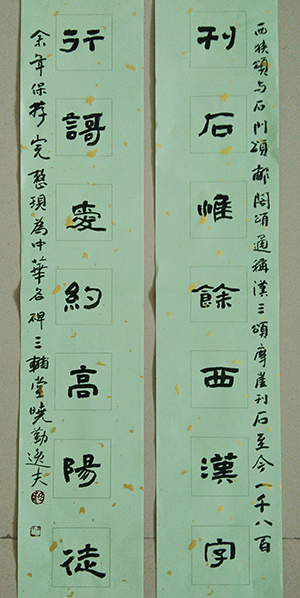 刊石帷餘西漢字
行謌夌約高陽徒
西狹頌与石門頌郙閣頌通稱漢三頌摩崖刊石至今一千八百
余年保存完整現為中華名碑三輔堂曉勤逸夫